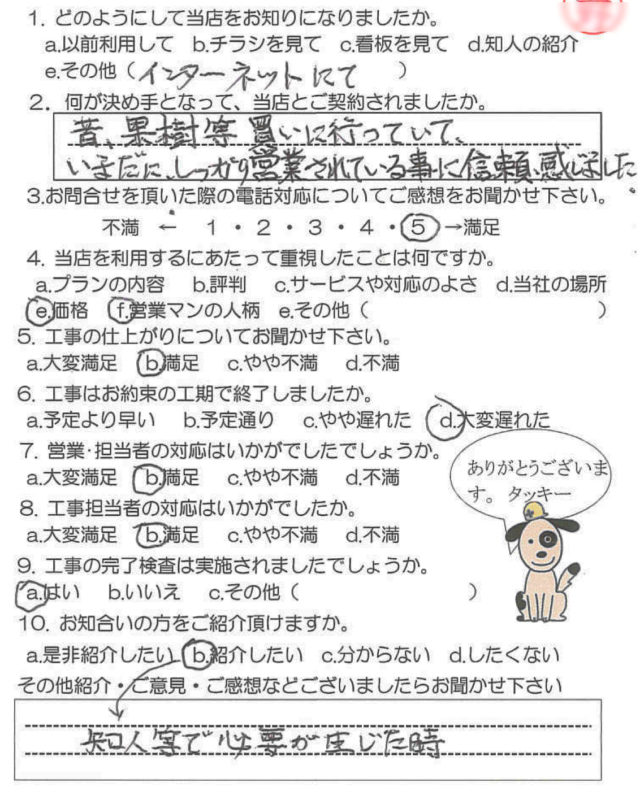 1. どのようにして当店をお知りになりましたか。
a.以前利用して b.チラシを見て c.看板を見て d.知人の紹介
e.その他（インターネットにて）
2. 何が決め手となって、当店とご契約されましたか。
昔、果樹等買いに行っていて、
いまだに、しっかり営業されている事に信頼感じました。
3.お問合せを頂いた際の電話対応についてご感想をお聞かせ下さい。
不満 ← 1・2・3・4・5→満足
4. 当店を利用するにあたって重視したことは何ですか。
a.プランの内容 b.評判 c.サービスや対応のよさ d.当社の場所
e.価格 f.営業マンの人柄 e.その他（ ）
5. 工事の仕上がりについてお聞かせ下さい。
a.大変満足 b.満足 c.やや不満 d.不満
6. 工事はお約束の工期で終了しましたか。
a.予定より早い b.予定通り c.やや遅れた d.大変遅れた
7. 営業・担当者の対応はいかがでしたでしょうか。
a.大変満足 b.満足 c.やや不満 d.不満
ありがとうございま
す。 タッキー
8. 工事担当者の対応はいかがでしたか。
a.大変満足 b.満足 c.やや不満 d.不満
9. 工事の完了検査は実施されましたでしょうか。
a.はい b.いいえ c.その他（ ）
10. お知合いの方をご紹介頂けますか。
a.是非紹介したい b.紹介したい c.分からない d.したくない
その他紹介・ご意見・ご感想などございましたらお聞かせ下さい
知人等で必要が生じた時